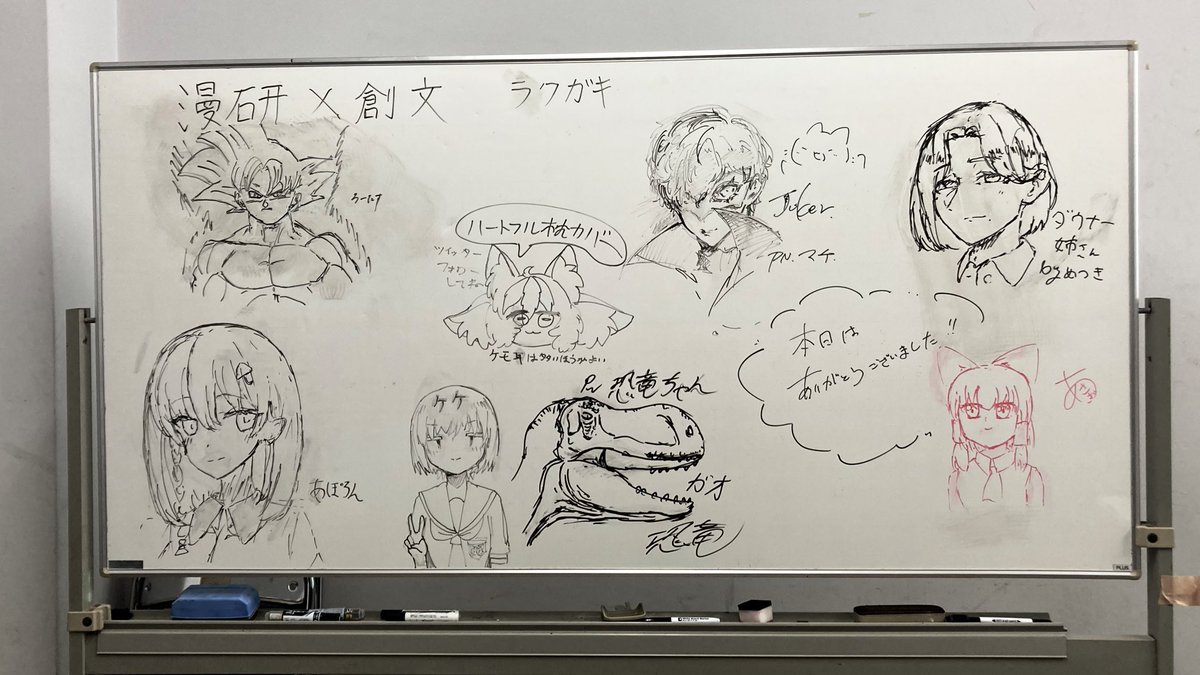 漫研×創文 ラクガキ
ハートフル枕カバー
ツイッター
フォロー
してね
ケモ耳は多いほうがよい
Joker.
P.N.マチ.
ダウナー
姉さん
byめつき
本日は
ありがとうございました!!
あぽろん
ケケ
恐竜ちゃん
ガオ
恐竜
PLUS